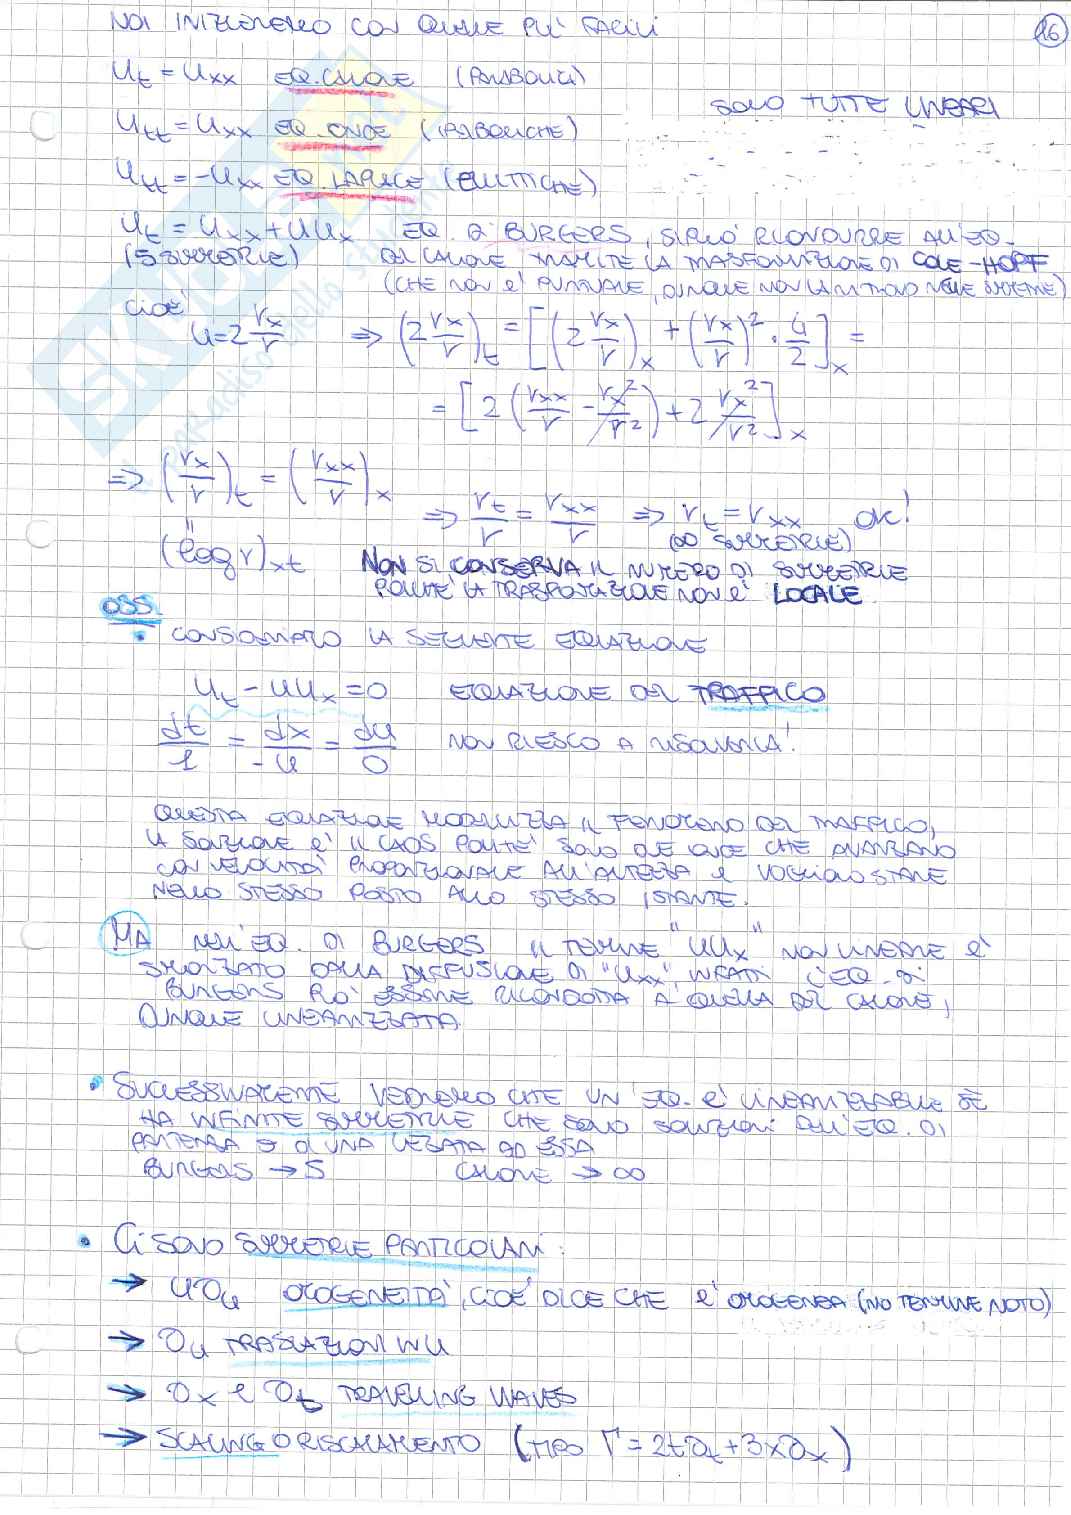 NOI INIZIEREMO CON QUELLE PIU' FACILI
26
U_t = U_xx EQ. CALORE (PARABOLICI)
SONO TUTTE LINEARI
U_tt = U_xx EQ. ONDE (IPERBOLICHE)
U_tt = -U_xx EQ. LAPLACE (ELLITTICHE)
U_t = U_xx + UU_x EQ. DI BURGERS, SI PUO' RICONDURRE ALL'EQ.
(5 SIMMETRIE) DEL CALORE TRAMITE LA TRASFORMAZIONE DI COLE-HOPF
(CHE NON E' PUNTUALE, DUNQUE NON LA RITROVO NELLE SIMMETRIE)
CIOE'
U = 2 v_x/v ⇒ (2 v_x/v)_t = [(2 v_x/v)_x + (v_x/v)^2 · 4/2]_x =
= [2 (v_xx/v - v_x^2/v^2) + 2 v_x^2/v^2]_x
⇒ (v_x/v)_t = (v_xx/v)_x
⇒ v_t/v = v_xx/v ⇒ v_t = v_xx OK!
(∞ SIMMETRIE)
"
(log v)_xt NON SI CONSERVA IL NUMERO DI SIMMETRIE
POICHE' LA TRASFORMAZIONE NON E' LOCALE
OSS.
• CONSIDERIAMO LA SEGUENTE EQUAZIONE
U_t - UU_x = 0 EQUAZIONE DEL TRAFFICO
dt/1 = dx/-u = du/0 NON RIESCO A RISOLVERLA!
QUESTA EQUAZIONE MODELLIZZA IL FENOMENO DEL TRAFFICO,
LA SOLUZIONE E' IL CAOS POICHE' SONO DUE ONDE CHE AVANZANO
CON VELOCITA' PROPORZIONALE ALL'ALTEZZA E VOGLIONO STARE
NELLO STESSO POSTO ALLO STESSO ISTANTE.
MA NELL'EQ. DI BURGERS IL TERMINE "UU_x" NON LINEARE E'
SMORZATO DALLA DIFFUSIONE DI "U_xx", INFATTI L'EQ. DI
BURGERS PUO' ESSERE RICONDOTTA A QUELLA DEL CALORE,
DUNQUE LINEARIZZATA.
• SUCCESSIVAMENTE VEDREMO CHE UN'EQ. E' LINEARIZZABILE SE
HA INFINITE SIMMETRIE CHE SONO SOLUZIONI DELL'EQ. DI
PARTENZA O DI UNA LEGATA AD ESSA
BURGERS → 5 CALORE → ∞
• CI SONO SIMMETRIE PARTICOLARI:
→ U∂_u OMOGENEITA', CIOE' DICE CHE E' OMOGENEA (NO TERMINE NOTO)
→ ∂_u TRASLAZIONI IN U
→ ∂_x E ∂_t TRAVELLING WAVES
→ SCALING O RISCALAMENTO (TIPO Γ = 2t∂_t + 3x∂_x)